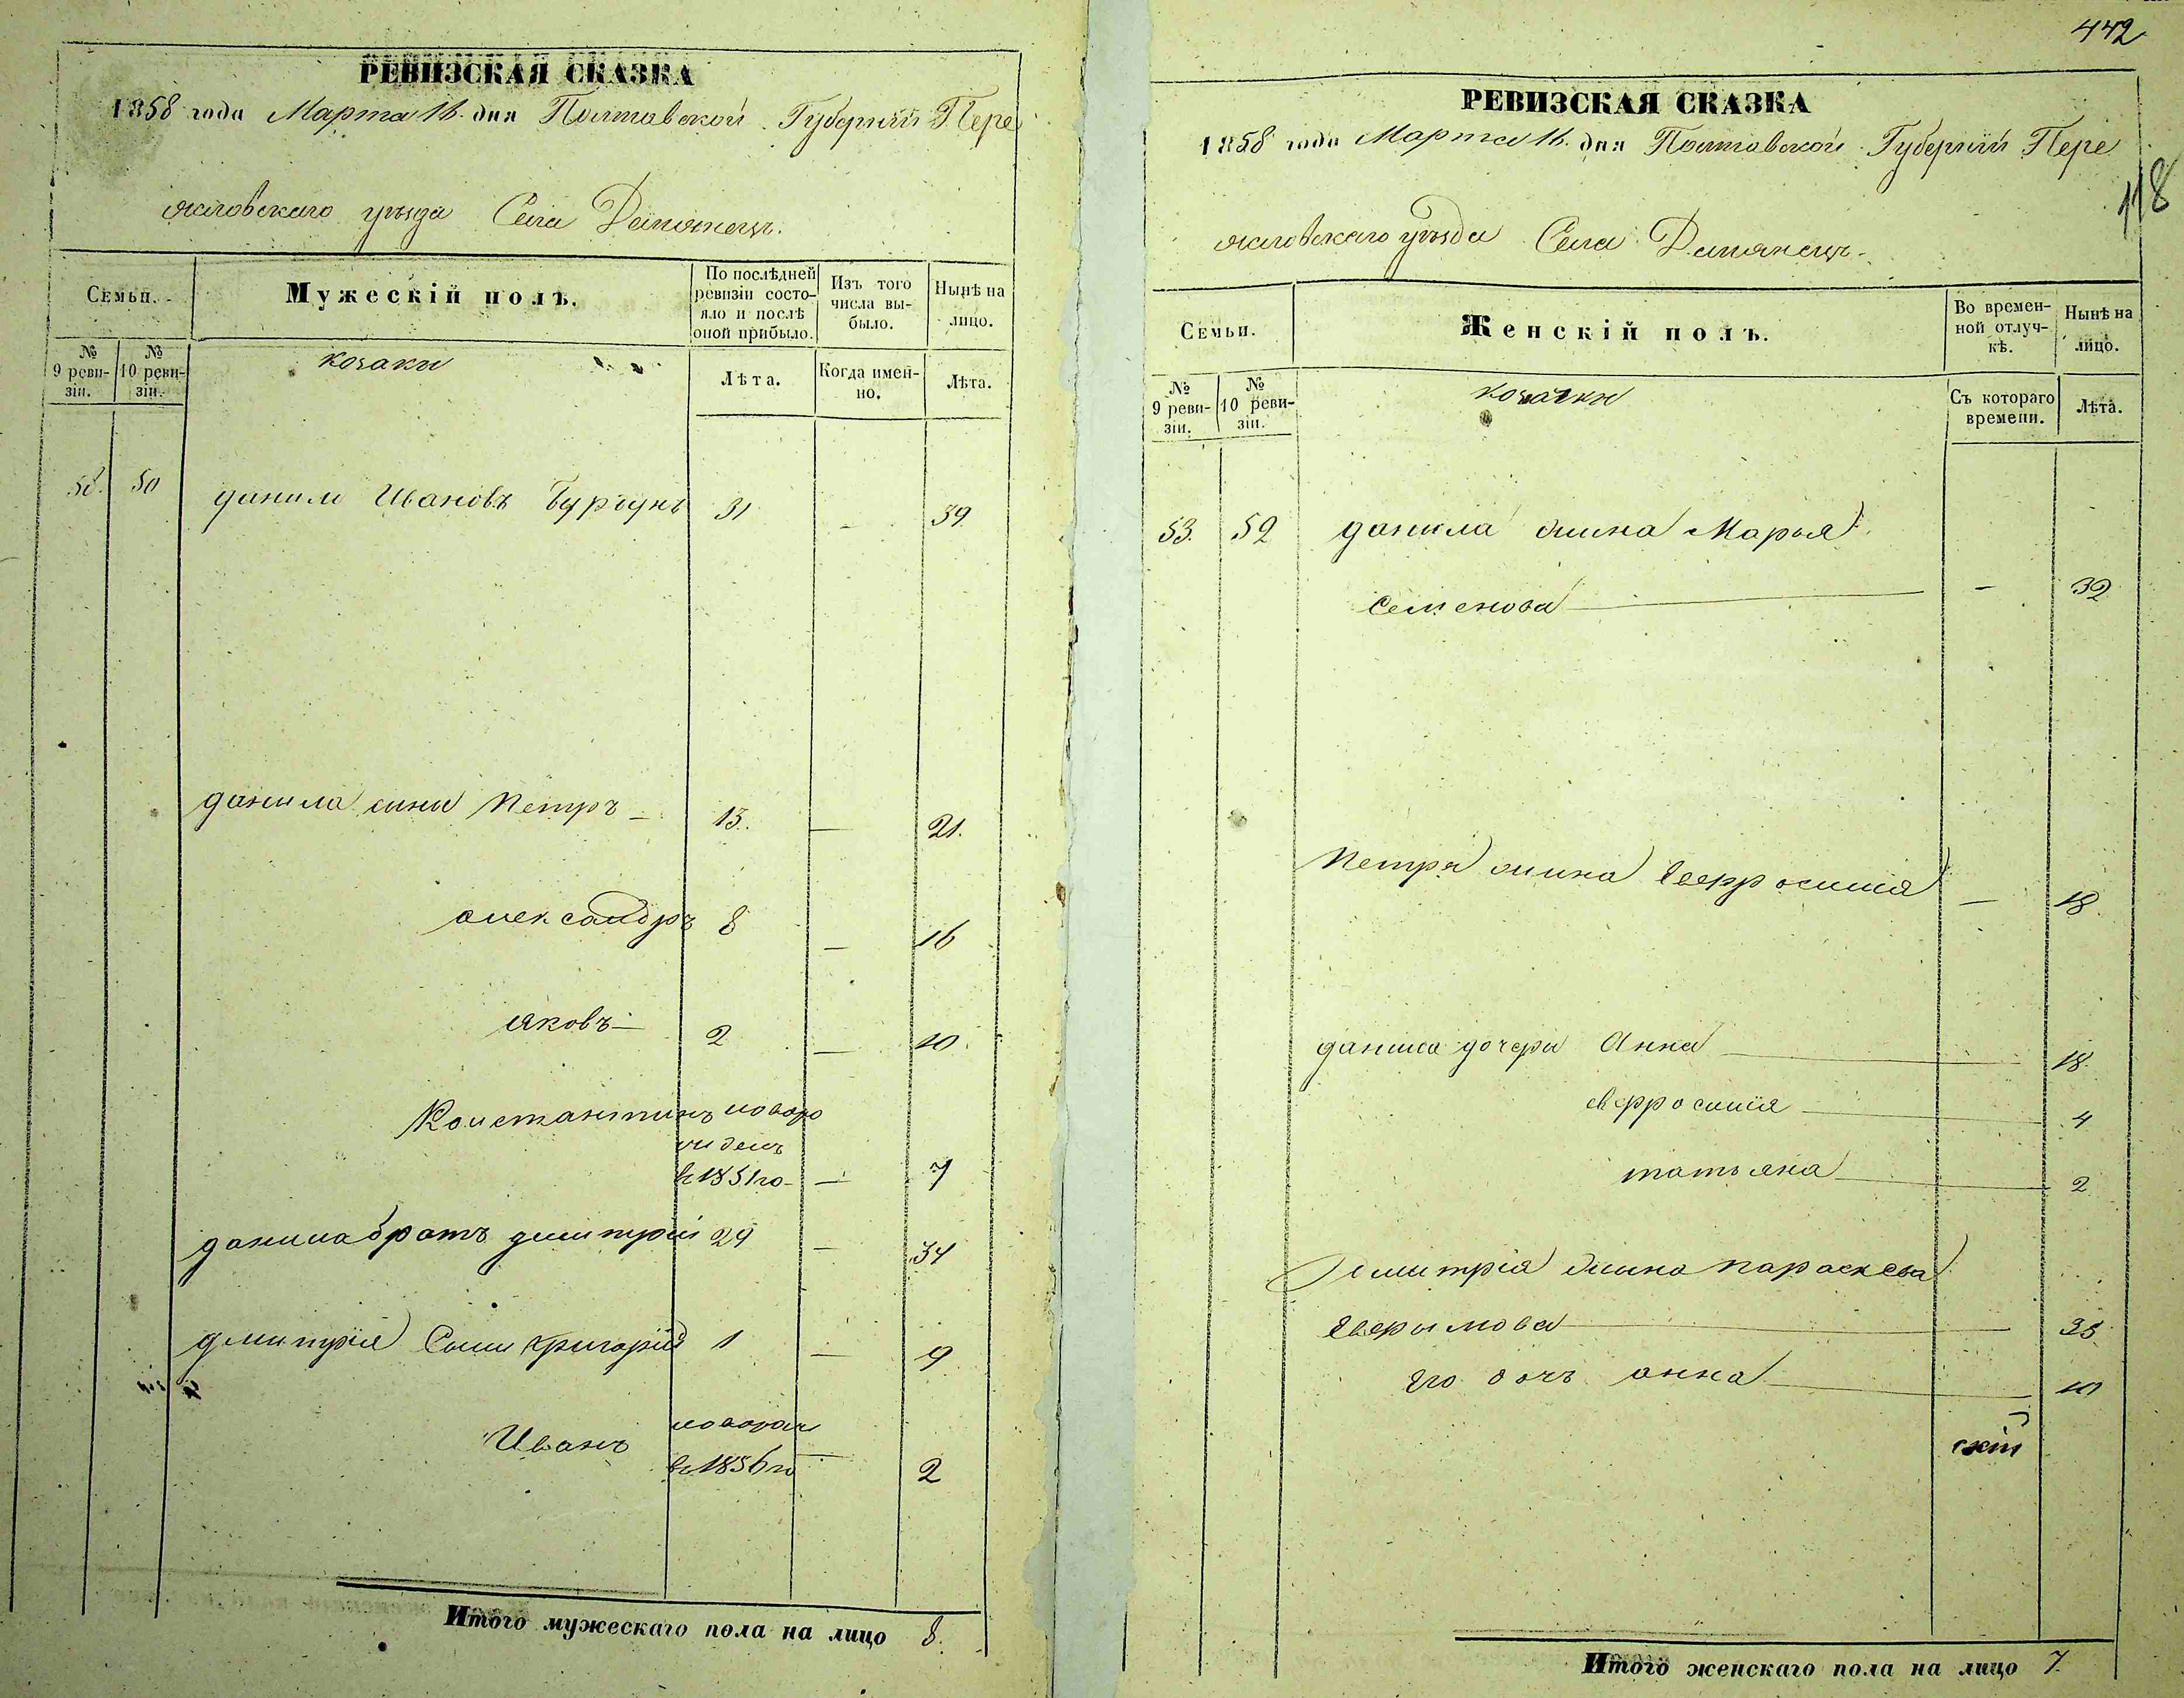 РЕВИЗСКАЯ СКАЗКА
1858 года Марта 16 дня Полтавской Губернии Пере
яславскаго уезда Села Демянецъ.
Семьи.
Мужескій полъ.
По послѣдней ревизіи состояло и послѣ оной прибыло.
Изъ того числа выбыло.
Нынѣ на лицо.
№ 9 ревизіи.
№ 10 ревизіи.
козаки
Лѣта.
Когда именно.
Лѣта.
50 данило Ивановъ 31 - 39
данила сини Петръ - 13. — 21.
александръ 8 — 16
яковъ — 2 — 10.
Константинъ новоро
жденъ
в 1851 го - — 7
данила братъ дмитрій — 34
дмитрія Сини Григорій 1 — 9
Иванъ новорож
в 1856 го — 2
Итого мужескаго пола на лицо 8.
442
118
РЕВИЗСКАЯ СКАЗКА
1858 года Марта 16. дня Полтавской Губерніи Пере
яславскаго уезда Села Демянецъ.
Семьи.
Женскій полъ.
Во временной отлучкѣ.
Нынѣ на лицо.
№ 9 ревизіи.
№ 10 ревизіи.
козачки
Съ котораго времени.
Лѣта.
53. 52 данила жина Марья
семенова — - 32
Петра жина Евфросинія — 18.
данила дочери Анна — 18.
евфросинія — 4
татьяна — 2
Дмитрія жина параскева
Ефрымова —
Его дочъ анна — 10
Итого женскаго пола на лицо 7.